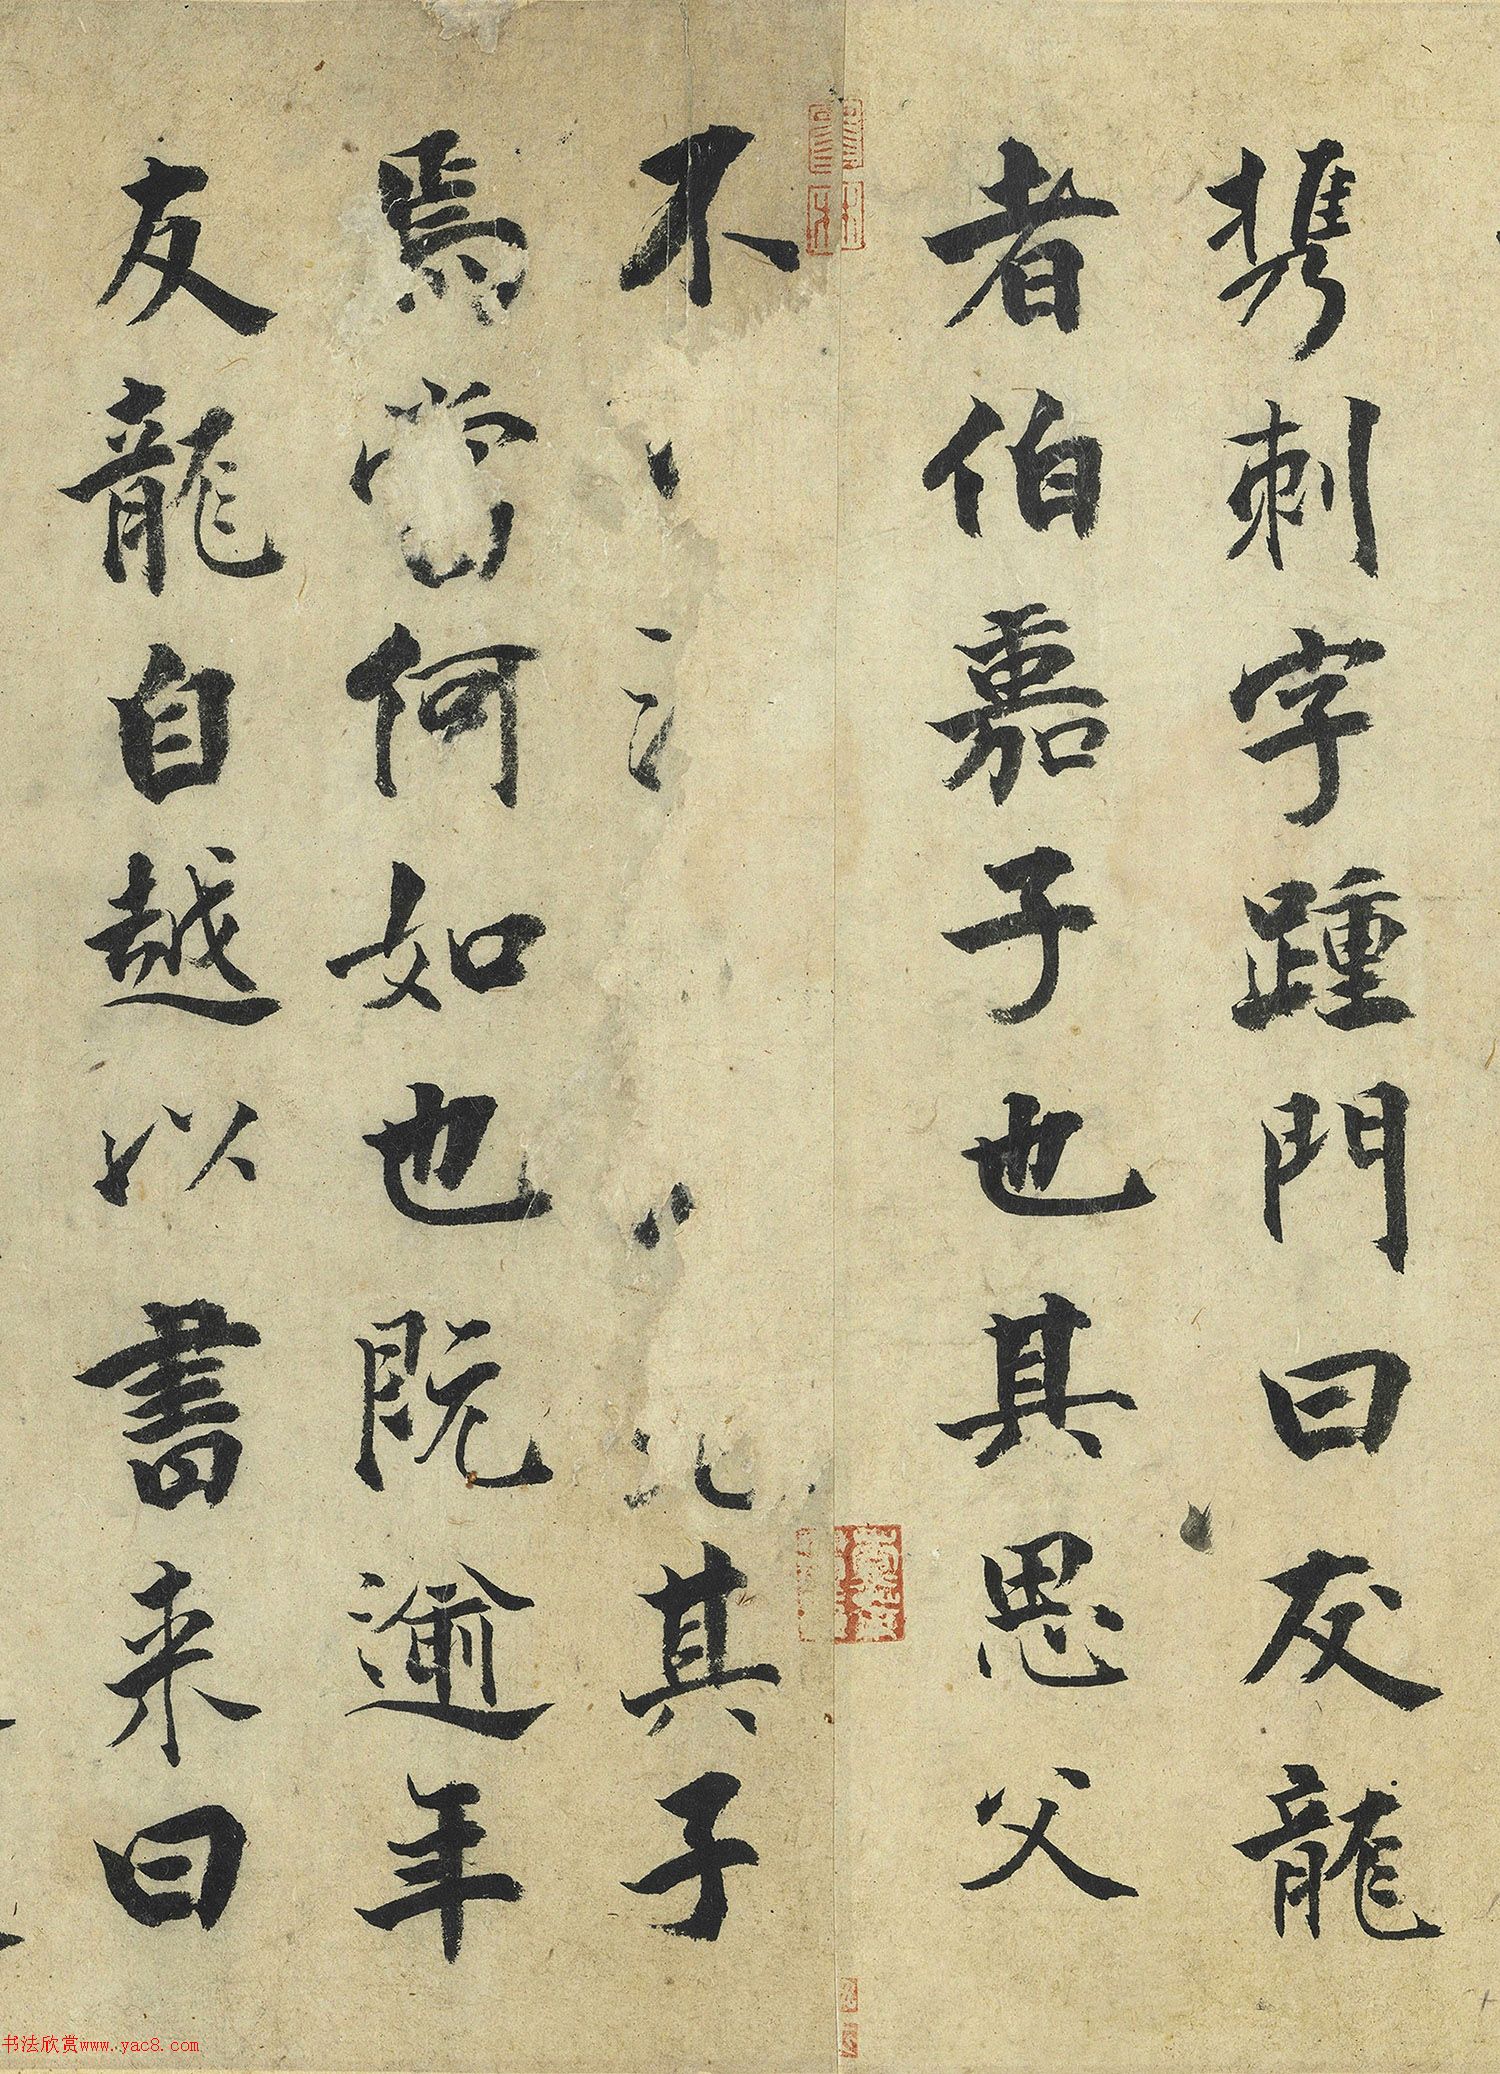 携刺字踵門曰友龍
者伯嘉子也其思父
不其子
焉當何如也既逾年
友龍自越以書来曰
书法欣赏www.yac8.com